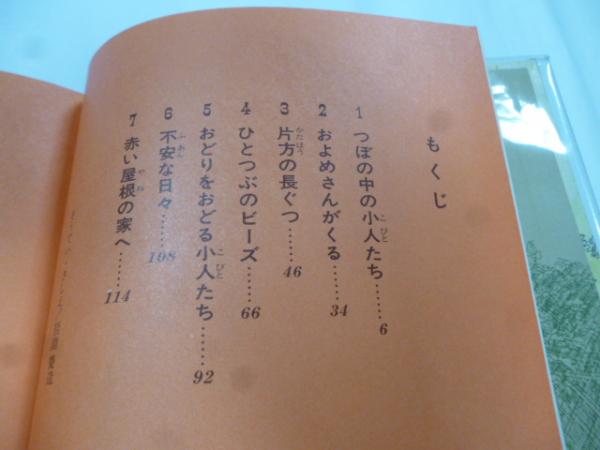 もくじ
1 つぼの中の小人たち……6
2 およめさんがくる……34
3 片方の長ぐつ……46
4 ひとつぶのビーズ……66
5 おどりをおどる小人たち……92
6 不安な日々……108
7 赤い屋根の家へ……114